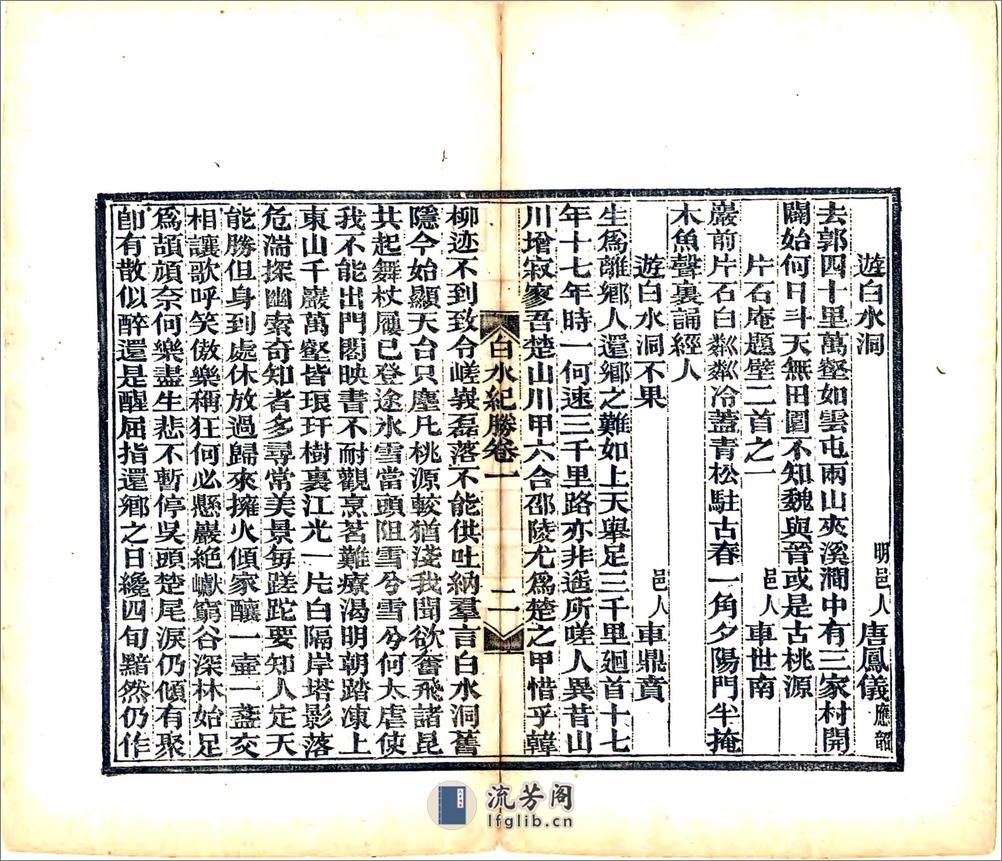 遊白水洞　明邑人唐鳳儀應韶
去郭四十里萬壑如雲屯兩山夾溪澗中有三家村開
闢始何日斗天無田園不知魏與晉或是古桃源
片石庵題壁二首之一　邑人車世南
巖前片石白粼粼冷蓋青松駐古春一角夕陽門半掩
木魚聲裏誦經人
遊白水洞不果　邑人車鼎賁
生爲離鄉人還鄉之難如上天舉足三千里廻首十七
年十七年時一何速三千里路亦非遥所嗟人異昔山
川增寂寥吾楚山川甲六合邵陵尤爲楚之甲惜乎韓
白水紀勝卷一　二
柳迹不到致令嵯峩磊落不能供吐納羣言白水洞舊
隱今始顯天台只塵凡桃源較猶淺我聞欲奮飛諸昆
共起舞杖屨已登途氷雪當頭阻雪兮雪兮何太虐使
我不能出門閣映書不耐觀烹茗難療渴明朝踏凍上
東山千巖萬壑皆琅玕樹裏江光一片白隔岸塔影落
危湍探幽索奇知者多尋常美景每蹉跎要知人定天
能勝但身到處休放過歸來擁火傾家釀一壺一盞交
相讓歌呼笑傲樂稱狂何必懸巖絶巘窮谷深林始足
爲頡頏奈何樂盡生悲不暫停吳頭楚尾淚仍傾有聚
卽有散似醉還是醒屈指還鄉之日纔四旬黯然仍作
流芳阁
lfglib.cn